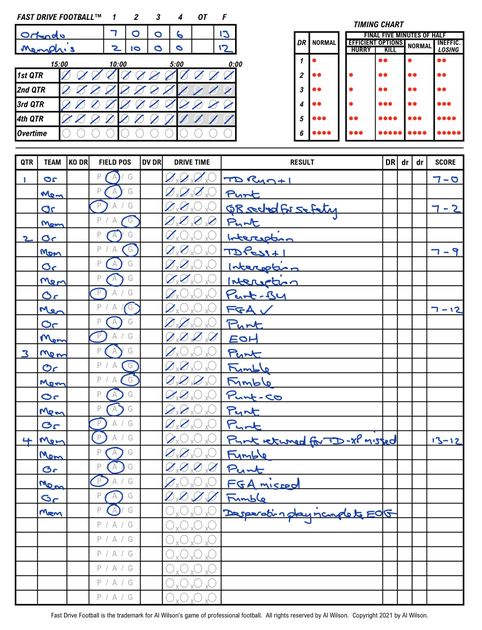 FAST DRIVE FOOTBALL™ 1 2 3 4 OT F
Orlando 7 0 0 6 13
Memphis 2 10 0 0 12
15:00 10:00 5:00 0:00
1st QTR
2nd QTR
3rd QTR
4th QTR
Overtime
TIMING CHART
FINAL FIVE MINUTES OF HALF
DR NORMAL EFFICIENT OPTIONS NORMAL INEFFIC.
HURRY KILL LOSING
1
2
3
4
5
6
QTR TEAM KO DR FIELD POS DV DR DRIVE TIME RESULT DR dr dr SCORE
1 Or P A / G TD Run +1 7-0
Mem P A / G Punt
Or P A / G QB sacked for safety 7-2
Mem P / A G Punt
2 Or P A / G Interception
Mem P / A G TD Pass +1 7-9
Or P A / G Interception
Mem P A / G Interception
Or P A / G Punt-BU
Mem P / A G FGA ✓ 7-12
Or P A / G Punt
Mem P A / G EOH
3 Mem P A / G Punt
Or P / A G Fumble
Mem P / A G Fumble
Or P A / G Punt-CO
Mem P A / G Punt
Or P A / G Punt
4 Mem P A / G Punt returned for TD-XP missed 13-12
Mem P A / G Fumble
Or P A / G Punt
Mem P A / G FGA missed
Or P A / G Fumble
Mem P A / G Desperation play incomplete EOG
P / A / G
P / A / G
P / A / G
P / A / G
P / A / G
P / A / G
Fast Drive Football is the trademark for Al Wilson's game of professional football. All rights reserved by Al Wilson. Copyright 2021 by Al Wilson.